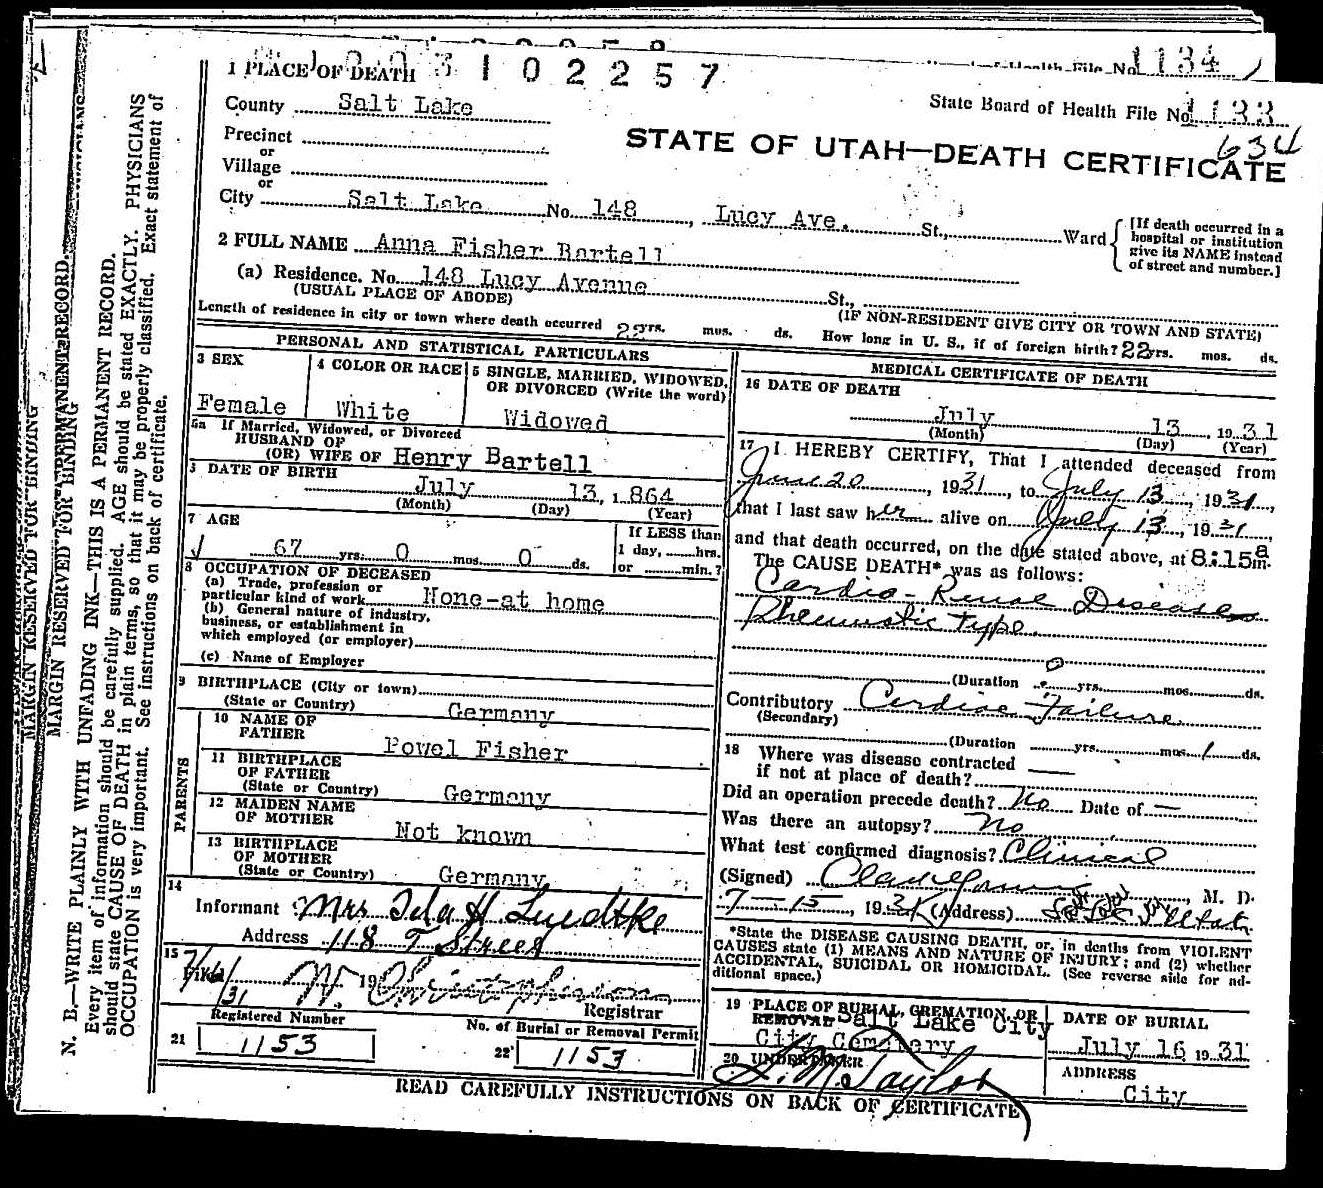 1134
State Board of Health File No. 1133
634
3 1 0 2 2 5 7
1 PLACE OF DEATH
County Salt Lake
STATE OF UTAH—DEATH CERTIFICATE
Precinct
or
Village
or
City Salt Lake No. 148, Lucy Ave. St., Ward
[If death occurred in a hospital or institution give its NAME instead of street and number.]
2 FULL NAME Anna Fisher Bartell
(a) Residence. No. 148 Lucy Avenue St.,
(USUAL PLACE OF ABODE) (IF NON-RESIDENT GIVE CITY OR TOWN AND STATE)
Length of residence in city or town where death occurred 22 yrs. mos. ds. How long in U. S., if of foreign birth? 22 yrs. mos. ds.
PERSONAL AND STATISTICAL PARTICULARS
3 SEX
Female
4 COLOR OR RACE
White
5 SINGLE, MARRIED, WIDOWED, OR DIVORCED (Write the word)
Widowed
5a If Married, Widowed, or Divorced
HUSBAND OF
(OR) WIFE OF Henry Bartell
DATE OF BIRTH
July 13, 1864
(Month) (Day) (Year)
7 AGE
67 yrs. 0 mos. 0 ds.
If LESS than
1 day, hrs.
or min.?
8 OCCUPATION OF DECEASED
(a) Trade, profession or
particular kind of work None-at home
(b) General nature of industry,
business, or establishment in
which employed (or employer)
(c) Name of Employer
9 BIRTHPLACE (City or town)
(State or Country) Germany
PARENTS
10 NAME OF
FATHER Powel Fisher
11 BIRTHPLACE
OF FATHER
(State or Country) Germany
12 MAIDEN NAME
OF MOTHER Not known
13 BIRTHPLACE
OF MOTHER
(State or Country) Germany
14
Informant Mrs Ida H Luedtke
Address 118 T Street
15
Filed 7/16/31 19 W. Christopherson
Registrar
Registered Number
21 1153
No. of Burial or Removal Permit
22 1153
MEDICAL CERTIFICATE OF DEATH
16 DATE OF DEATH
July 13, 1931
(Month) (Day) (Year)
17 I HEREBY CERTIFY, That I attended deceased from
June 20, 1931, to July 13, 1931,
that I last saw her alive on July 13, 1931,
and that death occurred, on the date stated above, at 8:15a m.
The CAUSE DEATH* was as follows:
Cardio-Renal Disease
Rheumatic type.
(Duration yrs. mos. ds.
Contributory Cardiac Failure
(Secondary)
(Duration yrs. mos. 1 ds.
18 Where was disease contracted
if not at place of death?
Did an operation precede death? No Date of —
Was there an autopsy? No
What test confirmed diagnosis? Clinical
(Signed) M. D.
7-15, 1931 (Address)
*State the DISEASE CAUSING DEATH, or, in deaths from VIOLENT
CAUSES state (1) MEANS AND NATURE OF INJURY; and (2) whether
ACCIDENTAL, SUICIDAL OR HOMICIDAL. (See reverse side for additional space.)
19 PLACE OF BURIAL, CREMATION, OR
REMOVAL Salt Lake City
City Cemetery
DATE OF BURIAL
July 16 1931
20 UNDERTAKER
S. M. Taylor
ADDRESS
City
READ CAREFULLY INSTRUCTIONS ON BACK OF CERTIFICATE
MARGIN RESERVED FOR BINDING
MARGIN RESERVED FOR BINDING
N. B.—WRITE PLAINLY WITH UNFADING INK—THIS IS A PERMANENT RECORD.
Every item of information should be carefully supplied. AGE should be stated EXACTLY. PHYSICIANS
should state CAUSE OF DEATH in plain terms, so that it may be properly classified. Exact statement of
OCCUPATION is very important. See instructions on back of certificate.